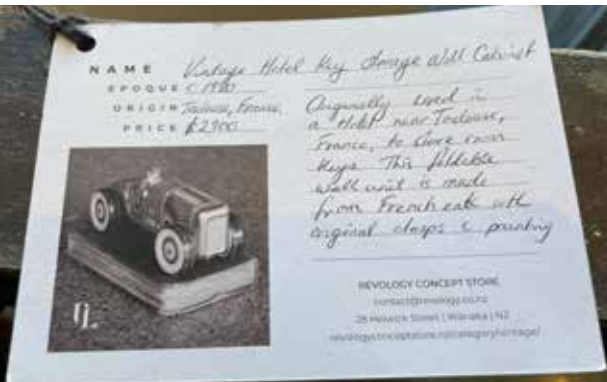 NAME Vintage Hotel Key Storage Wall Cabinet
EPOQUE C 1920
ORIGIN Toulouse, France.
PRICE $2900
Originally used in
a Hotel near Toulouse,
France, to store room
keys. This foldable
wall unit is made
from French oak with
original clasps & painting
REVOLOGY CONCEPT STORE
contact@revology.co.nz
Helwick Street | Wanaka | NZ